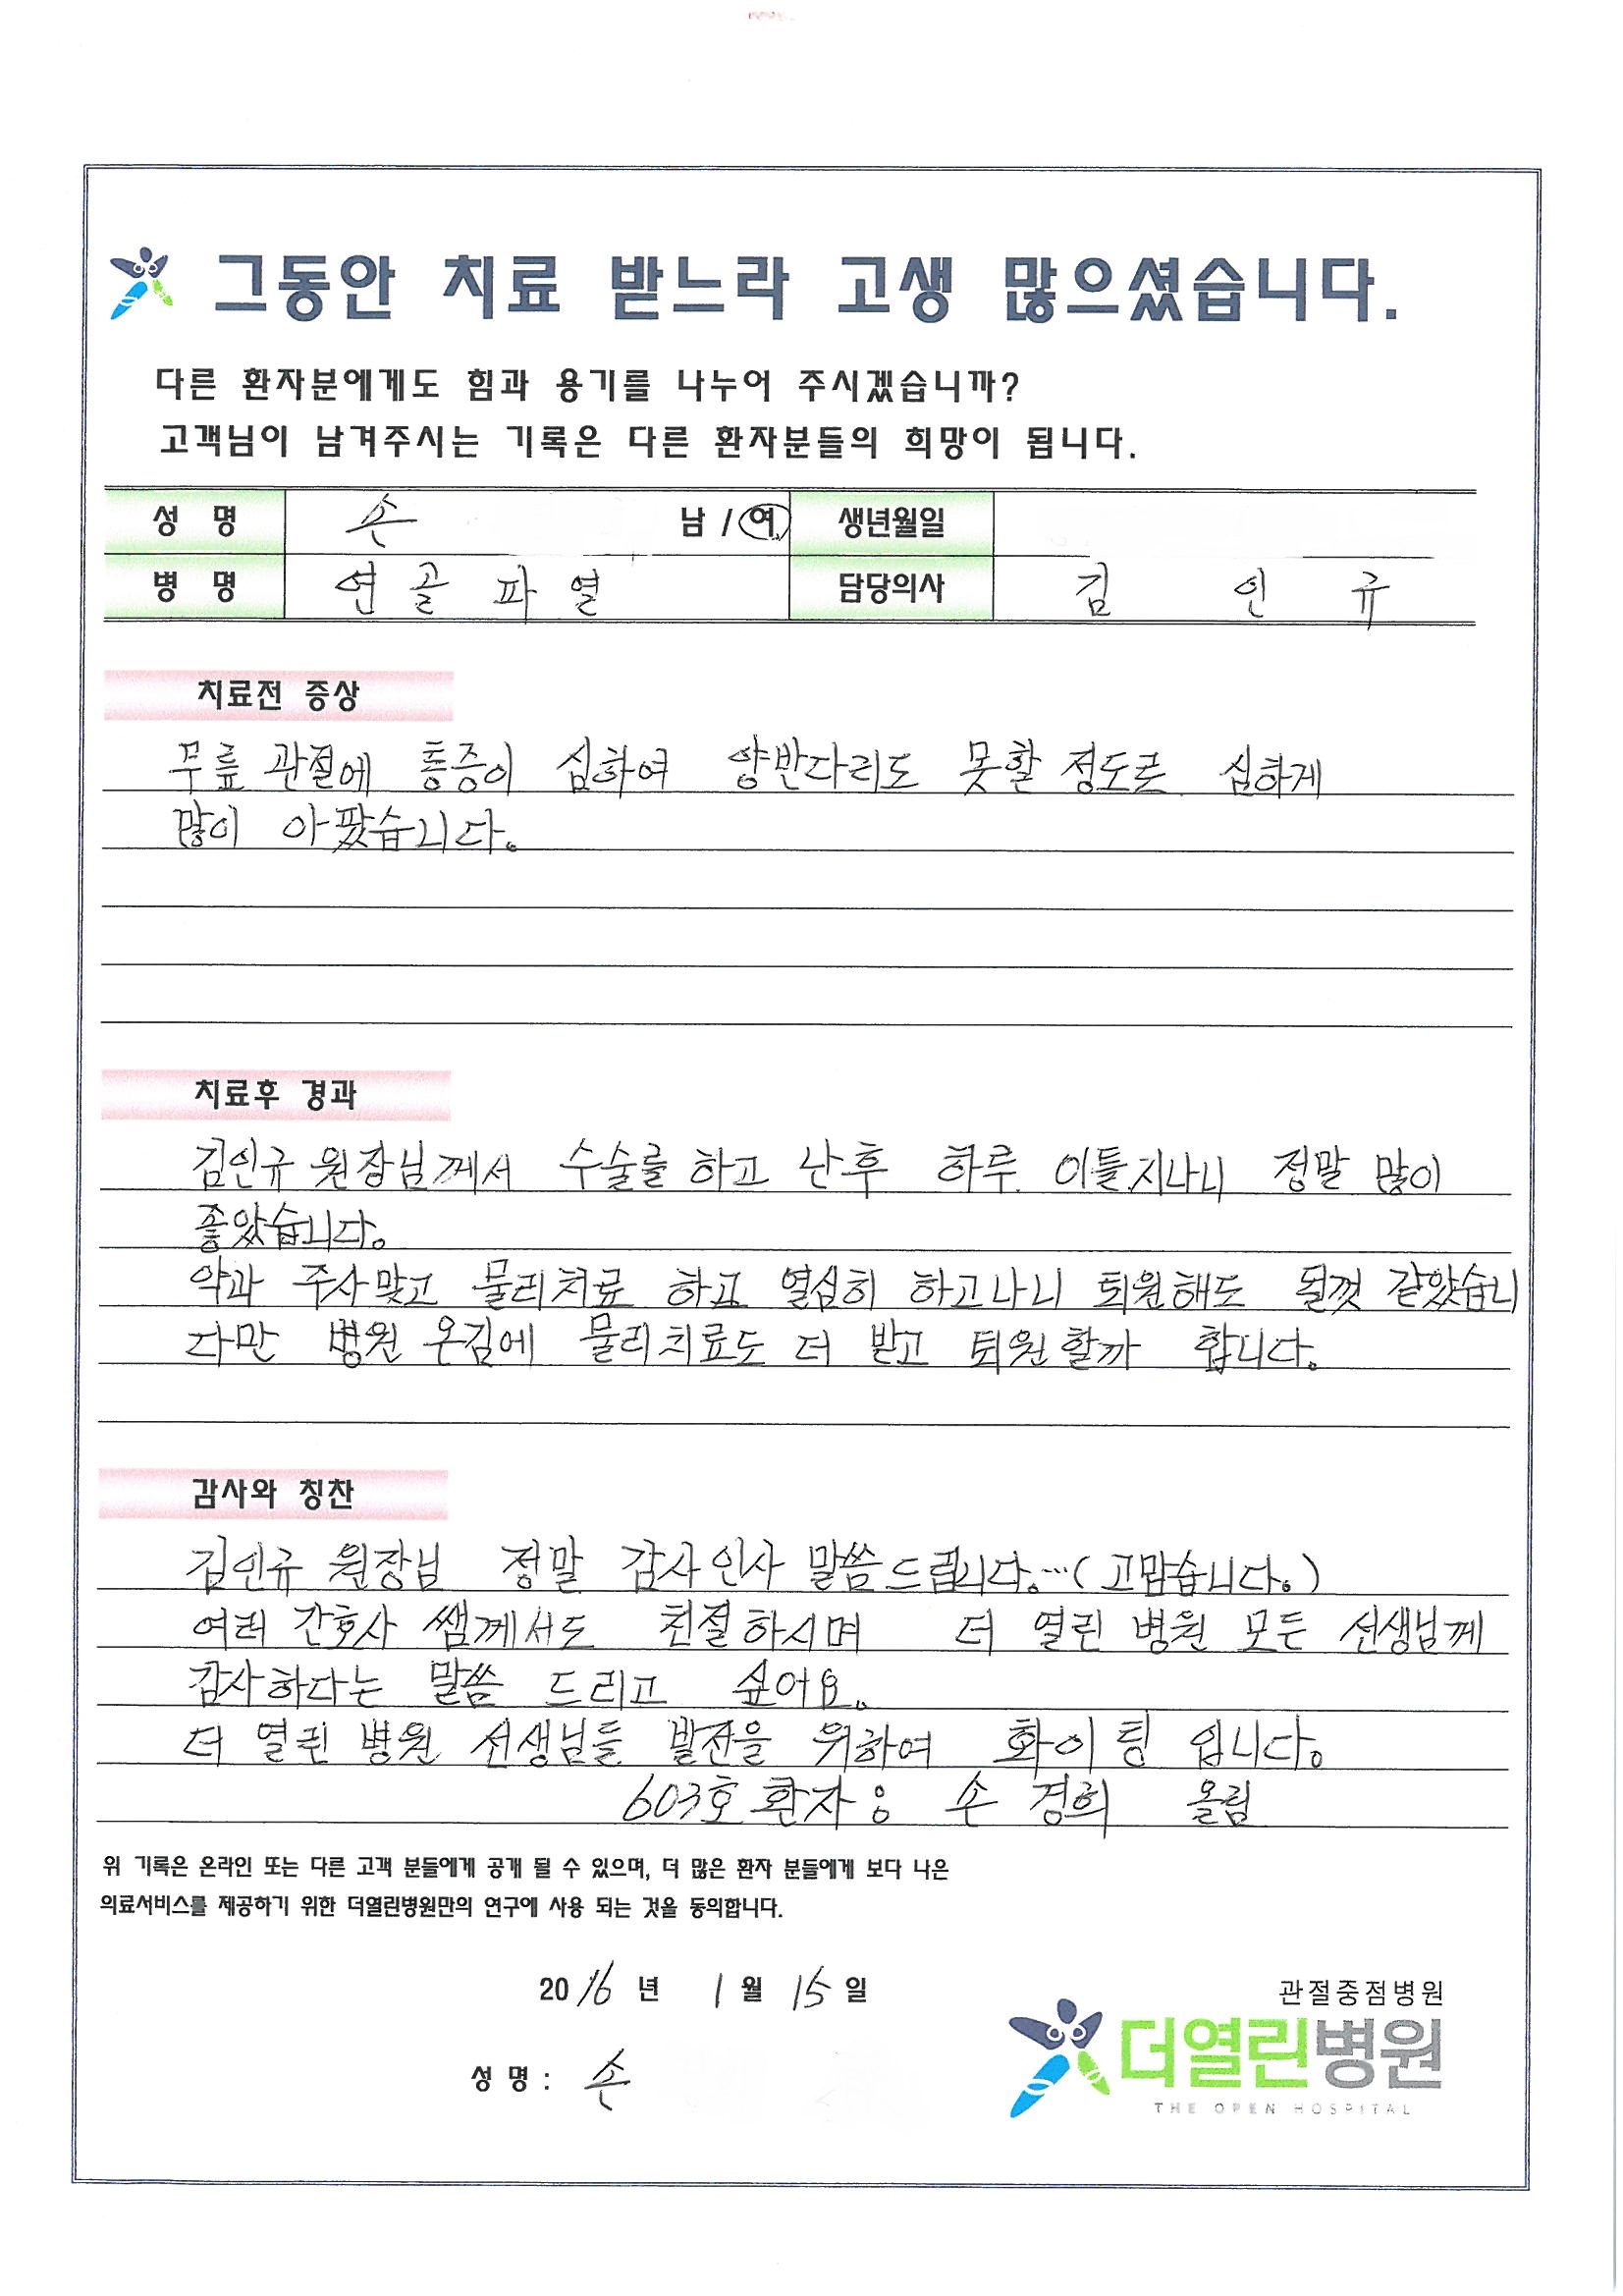 그동안 치료 받느라 고생 많으셨습니다.
다른 환자분에게도 힘과 용기를 나누어 주시겠습니까?
고객님이 남겨주시는 기록은 다른 환자분들의 희망이 됩니다.
성 명 손 남 / 여 생년월일
병 명 연골파열 담당의사 김 인 규
치료전 증상
무릎 관절에 통증이 심하여 양반다리도 못할 정도로 심하게
많이 아팠습니다.
치료후 경과
김인규 원장님께서 수술를 하고 난후 하루 이틀지나니 정말 많이
좋았습니다.
약과 주사맞고 물리치료 하고 열심히 하고나니 퇴원해도 될껏 같았습니
다만 병원 온김에 물리치료도 더 받고 퇴원할까 합니다.
감사와 칭찬
김인규 원장님 정말 감사인사 말씀드립니다.…(고맙습니다.)
여러 간호사 쌤께서도 친절하시며 더 열린 병원 모든 선생님께
감사하다는 말씀 드리고 싶어요.
더 열린 병원 선생님들 발전을 위하여 화이팅 입니다.
603호 환자: 손 경희 올림
위 기록은 온라인 또는 다른 고객 분들에게 공개 될 수 있으며, 더 많은 환자 분들에게 보다 나은
의료서비스를 제공하기 위한 더열린병원만의 연구에 사용 되는 것을 동의합니다.
2016 년 1 월 15 일
성 명 : 손
관절중점병원
더열린병원
THE OPEN HOSPITAL